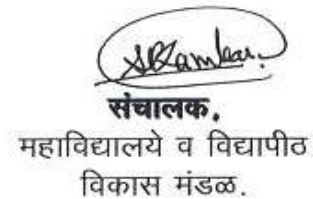 संचालक,
महाविद्यालये व विद्यापीठ
विकास मंडळ.